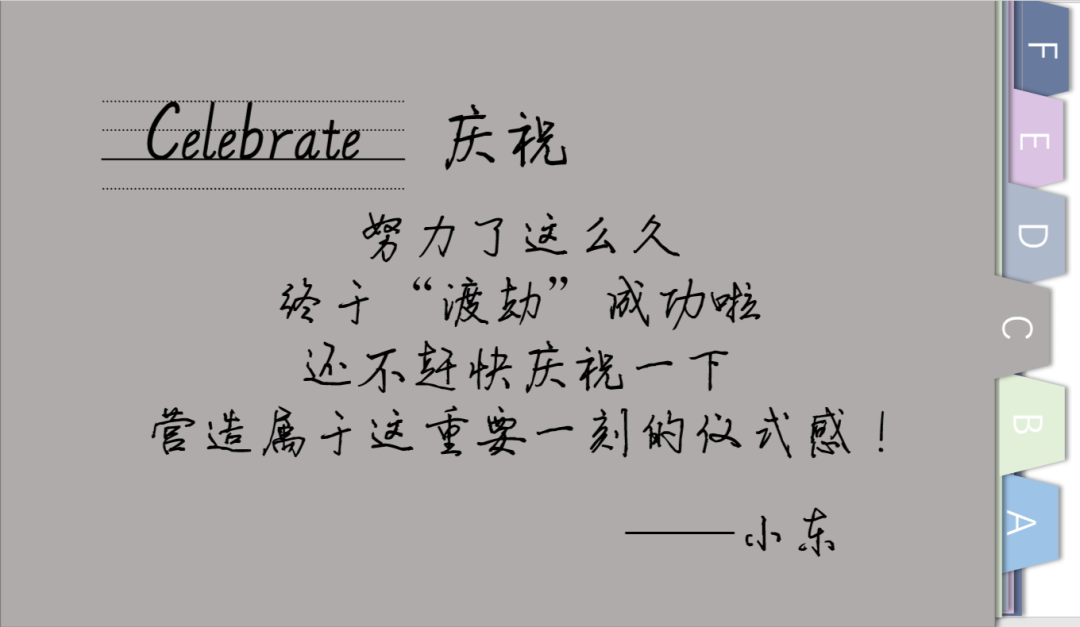 Celebrate 庆祝
努力了这么久
终于“渡劫”成功啦
还不赶快庆祝一下
营造属于这重要一刻的仪式感！
——小东
F
E
D
C
B
A